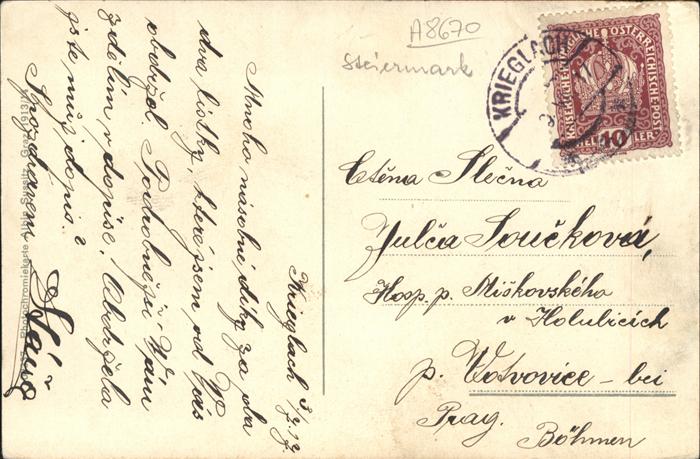 A8670
Steiermark
KRIEGLACH
KAISERLICHE KÖNIGLICHE ÖSTERREICHISCHE POST
10 HELLER
Ctěna Slečna
Julča Součková,
Hosp. p. Miškovského
v Holubicích
p. Wotvovice – bei
Prag.
Böhmen
Krieglach
Mnoho násobné díky za oba
dva lístky, které jsem od Vás
obdržel. Podrobnější Vám
zdělím v dopise. Obdržela
jste můj dopis?
S pozdravem
Photochromiekarte Albin Sussitz, Graz 1913/